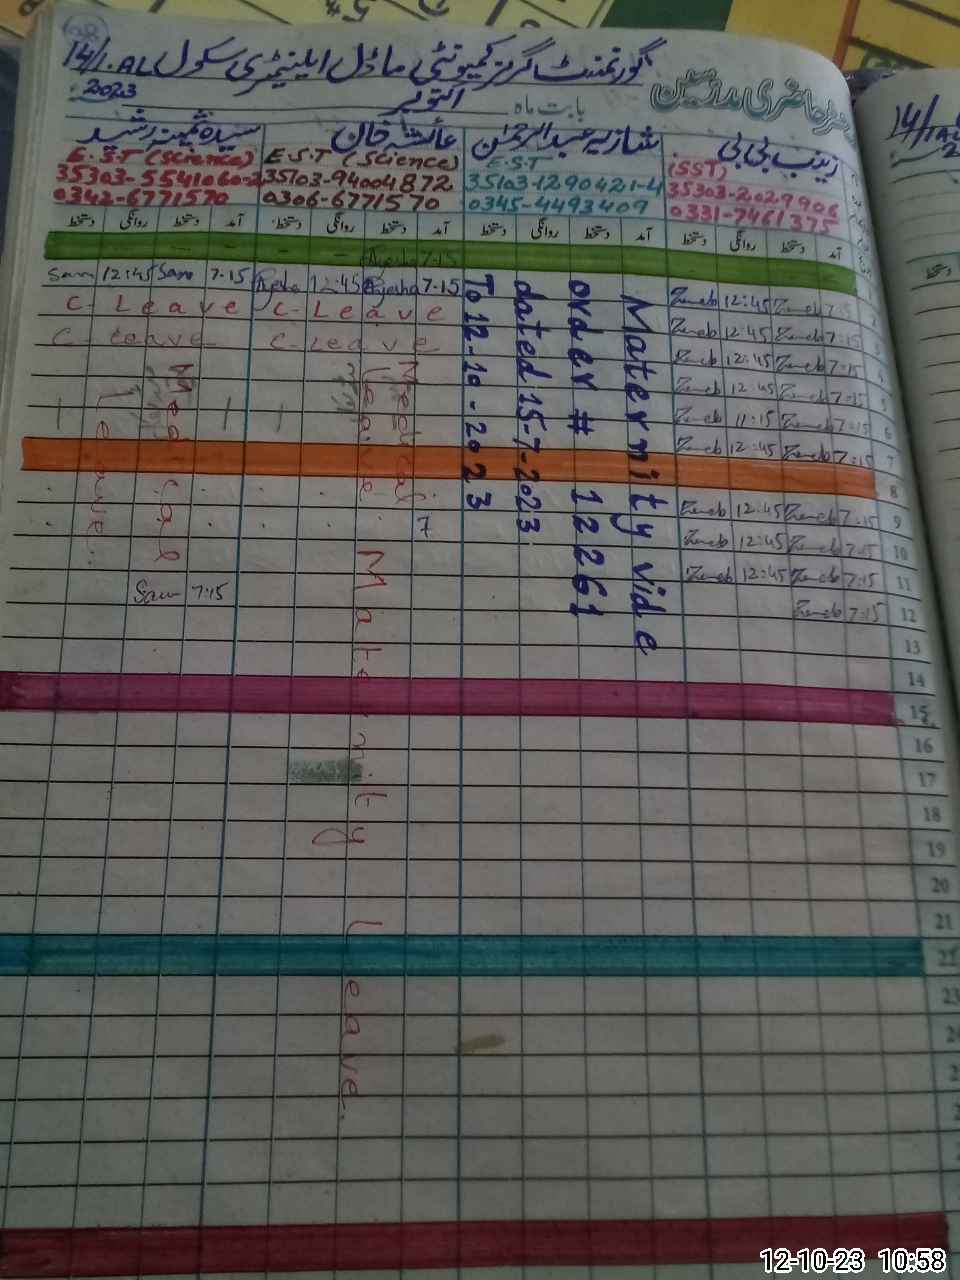 28
گورنمنٹ گرلز کمیونٹی ماڈل ایلیمنٹری سکول 14/1.AL
حاضری مدرسین
بابت ماہ اکتوبر 2023
زینب بی بی
(SST)
35303-2029906
0331-7461375
شازیہ عبدالرحمٰن
E.S.T
35103-1290421-4
0345-4493409
عائشہ خان
E.S.T (Science)
35103-94004872
0306-6771570
سیدہ ثمینہ رشید
E.S.T (Science)
35303-5541060-2
0342-6771570
آمد دستخط روانگی دستخط
آمد دستخط روانگی دستخط
آمد دستخط روانگی دستخط
آمد دستخط روانگی دستخط
Ayesha 7-15
Sam 12:45 Sam 7-15 Ayesha 12:45 Ayesha 7-15
Zeneb 12:45 Zeneb 7:15
C- Leave C- Leave
Zeneb 12:45 Zeneb 7:15
C- Leave C- Leave
Zeneb 12:45 Zeneb 7:15
Zeneb 12:45 Zeneb 7:15
Zeneb 11:15 Zeneb 7:15
Zeneb 12:45 Zeneb 7:15
Zeneb 12:45 Zeneb 7:15
Zeneb 12:45 Zeneb 7:15
Zeneb 12:45 Zeneb 7:15
Zeneb 7:15
Sam 7:15
7
Maternity vide
order # 12261
dated 15-7-2023
To 12-10-2023
Medical
Leave
Maternity Leave.
Medical
Leave.
2
3
4
5
6
7
8
9
10
11
12
13
14
15
16
17
18
19
20
21
22
23
24
14/1.AL
12-10-23 10:58